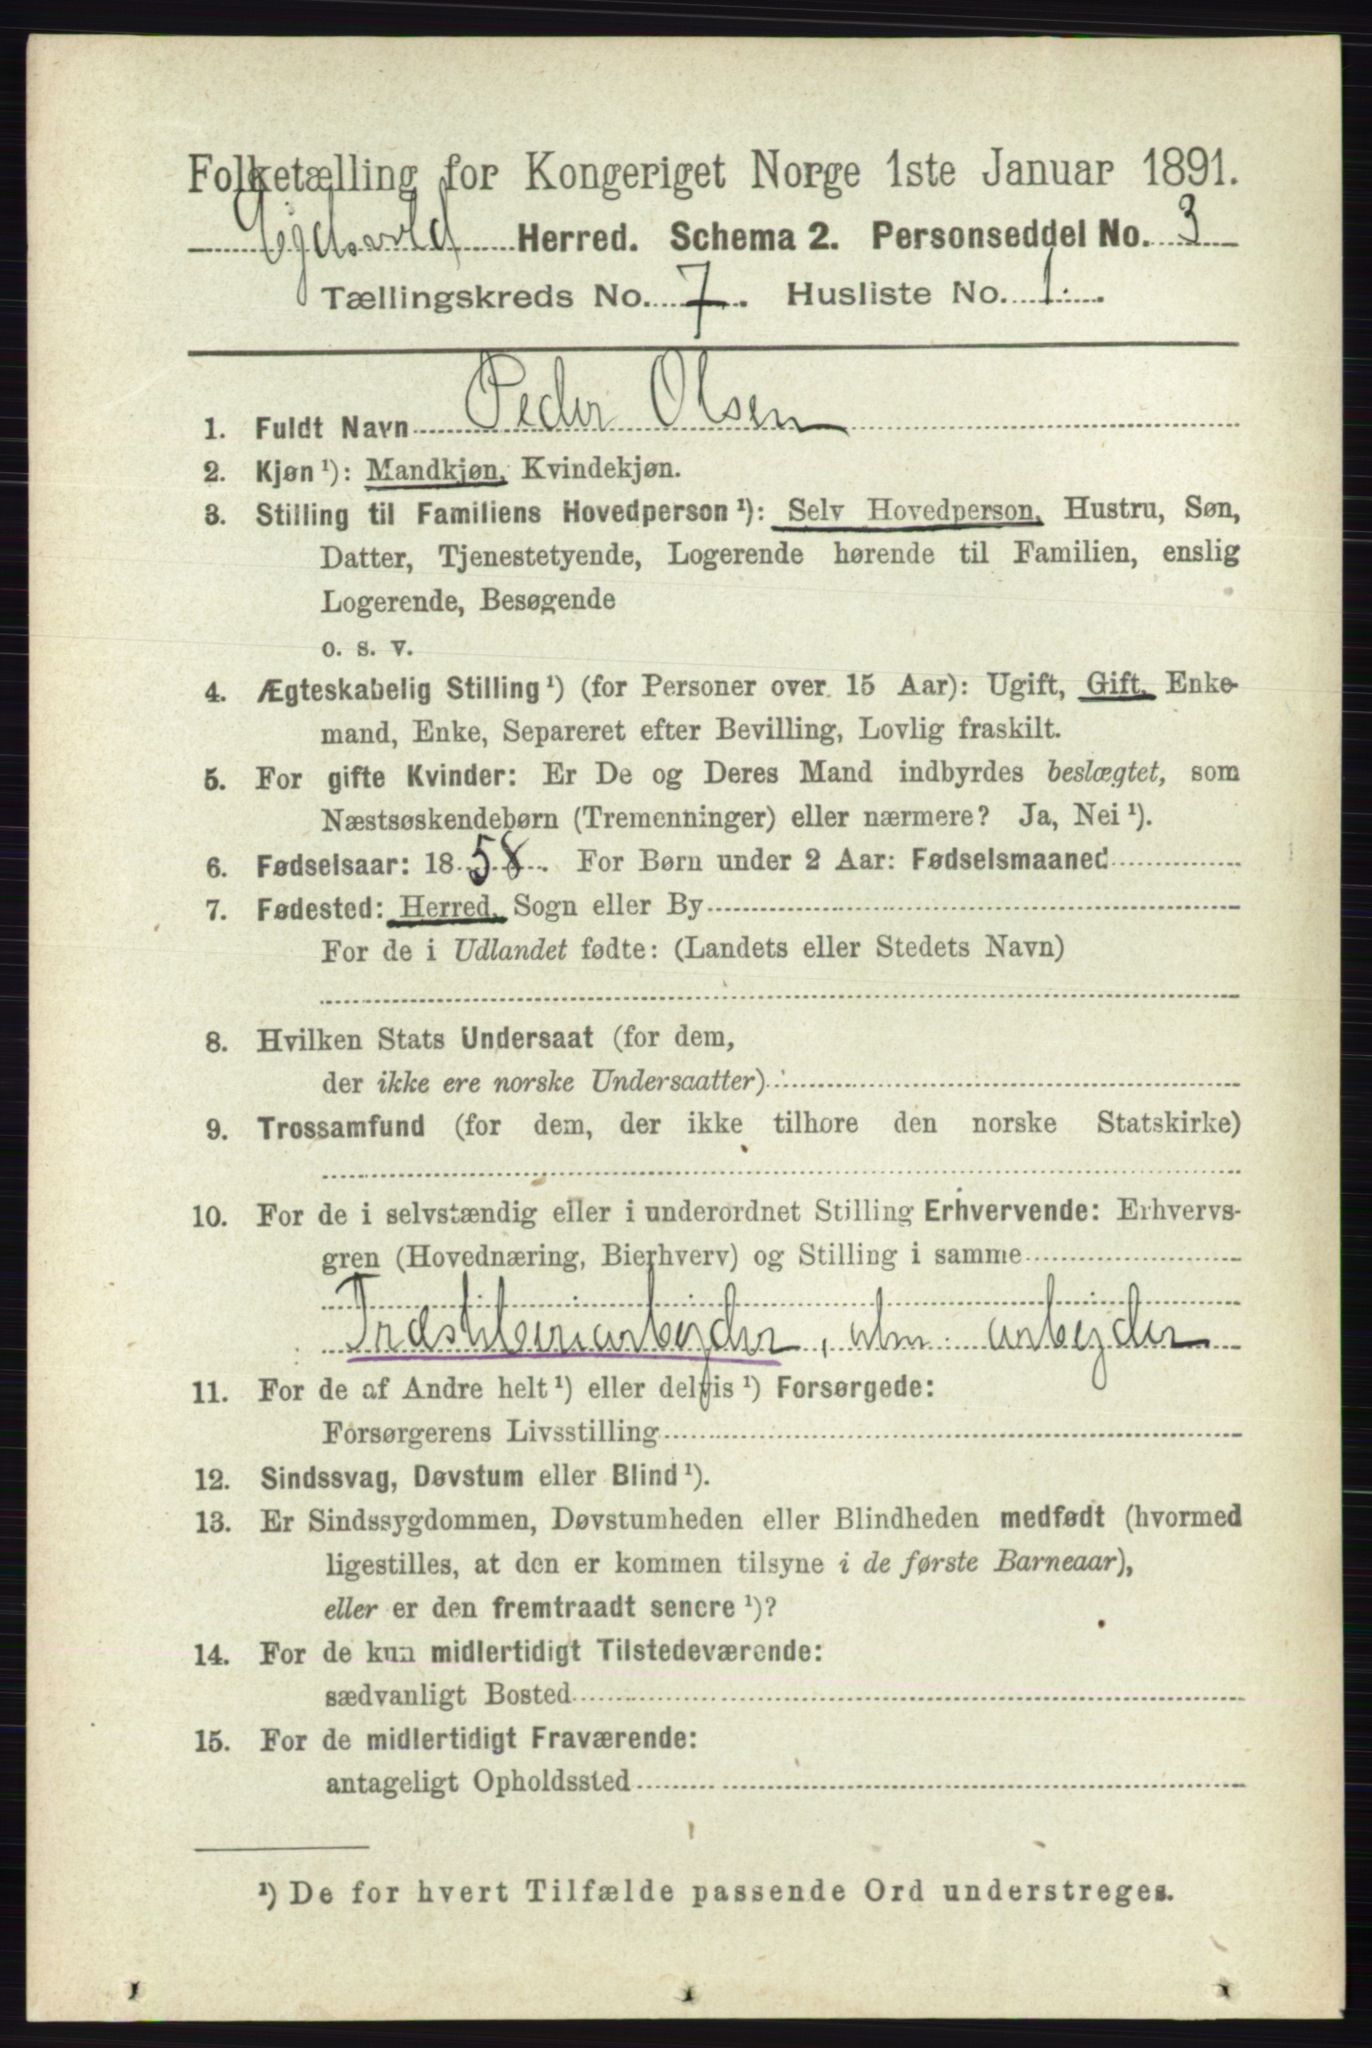 Folketælling for Kongeriget Norge 1ste Januar 1891.
Ejdsvold Herred. Schema 2. Personseddel No. 3
Tællingskreds No. 7. Husliste No. 1.
1. Fuldt Navn Peder Olsen
2. Kjøn ¹): Mandkjøn, Kvindekjøn.
3. Stilling til Familiens Hovedperson ¹): Selv Hovedperson, Hustru, Søn,
Datter, Tjenestetyende, Logerende hørende til Familien, enslig
Logerende, Besøgende
o. s. v.
4. Ægteskabelig Stilling ¹) (for Personer over 15 Aar): Ugift, Gift, Enke-
mand, Enke, Separeret efter Bevilling, Lovlig fraskilt.
5. For gifte Kvinder: Er De og Deres Mand indbyrdes beslægtet, som
Næstsøskendebørn (Tremenninger) eller nærmere? Ja, Nei ¹).
6. Fødselsaar: 1858. For Børn under 2 Aar: Fødselsmaaned
7. Fødested: Herred, Sogn eller By
For de i Udlandet fødte: (Landets eller Stedets Navn)
8. Hvilken Stats Undersaat (for dem,
der ikke ere norske Undersaatter)
9. Trossamfund (for dem, der ikke tilhøre den norske Statskirke)
10. For de i selvstændig eller i underordnet Stilling Erhvervende: Erhvervs-
gren (Hovednæring, Bierhverv) og Stilling i samme
Træsliberiarbejder, alm. arbejder
11. For de af Andre helt ¹) eller delvis ¹) Forsørgede:
Forsørgerens Livsstilling
12. Sindssvag, Døvstum eller Blind ¹).
13. Er Sindssygdommen, Døvstumheden eller Blindheden medfødt (hvormed
ligestilles, at den er kommen tilsyne i de første Barneaar),
eller er den fremtraadt senere ¹)?
14. For de kun midlertidigt Tilstedeværende:
sædvanligt Bosted
15. For de midlertidigt Fraværende:
antageligt Opholdssted
¹) De for hvert Tilfælde passende Ord understreges.